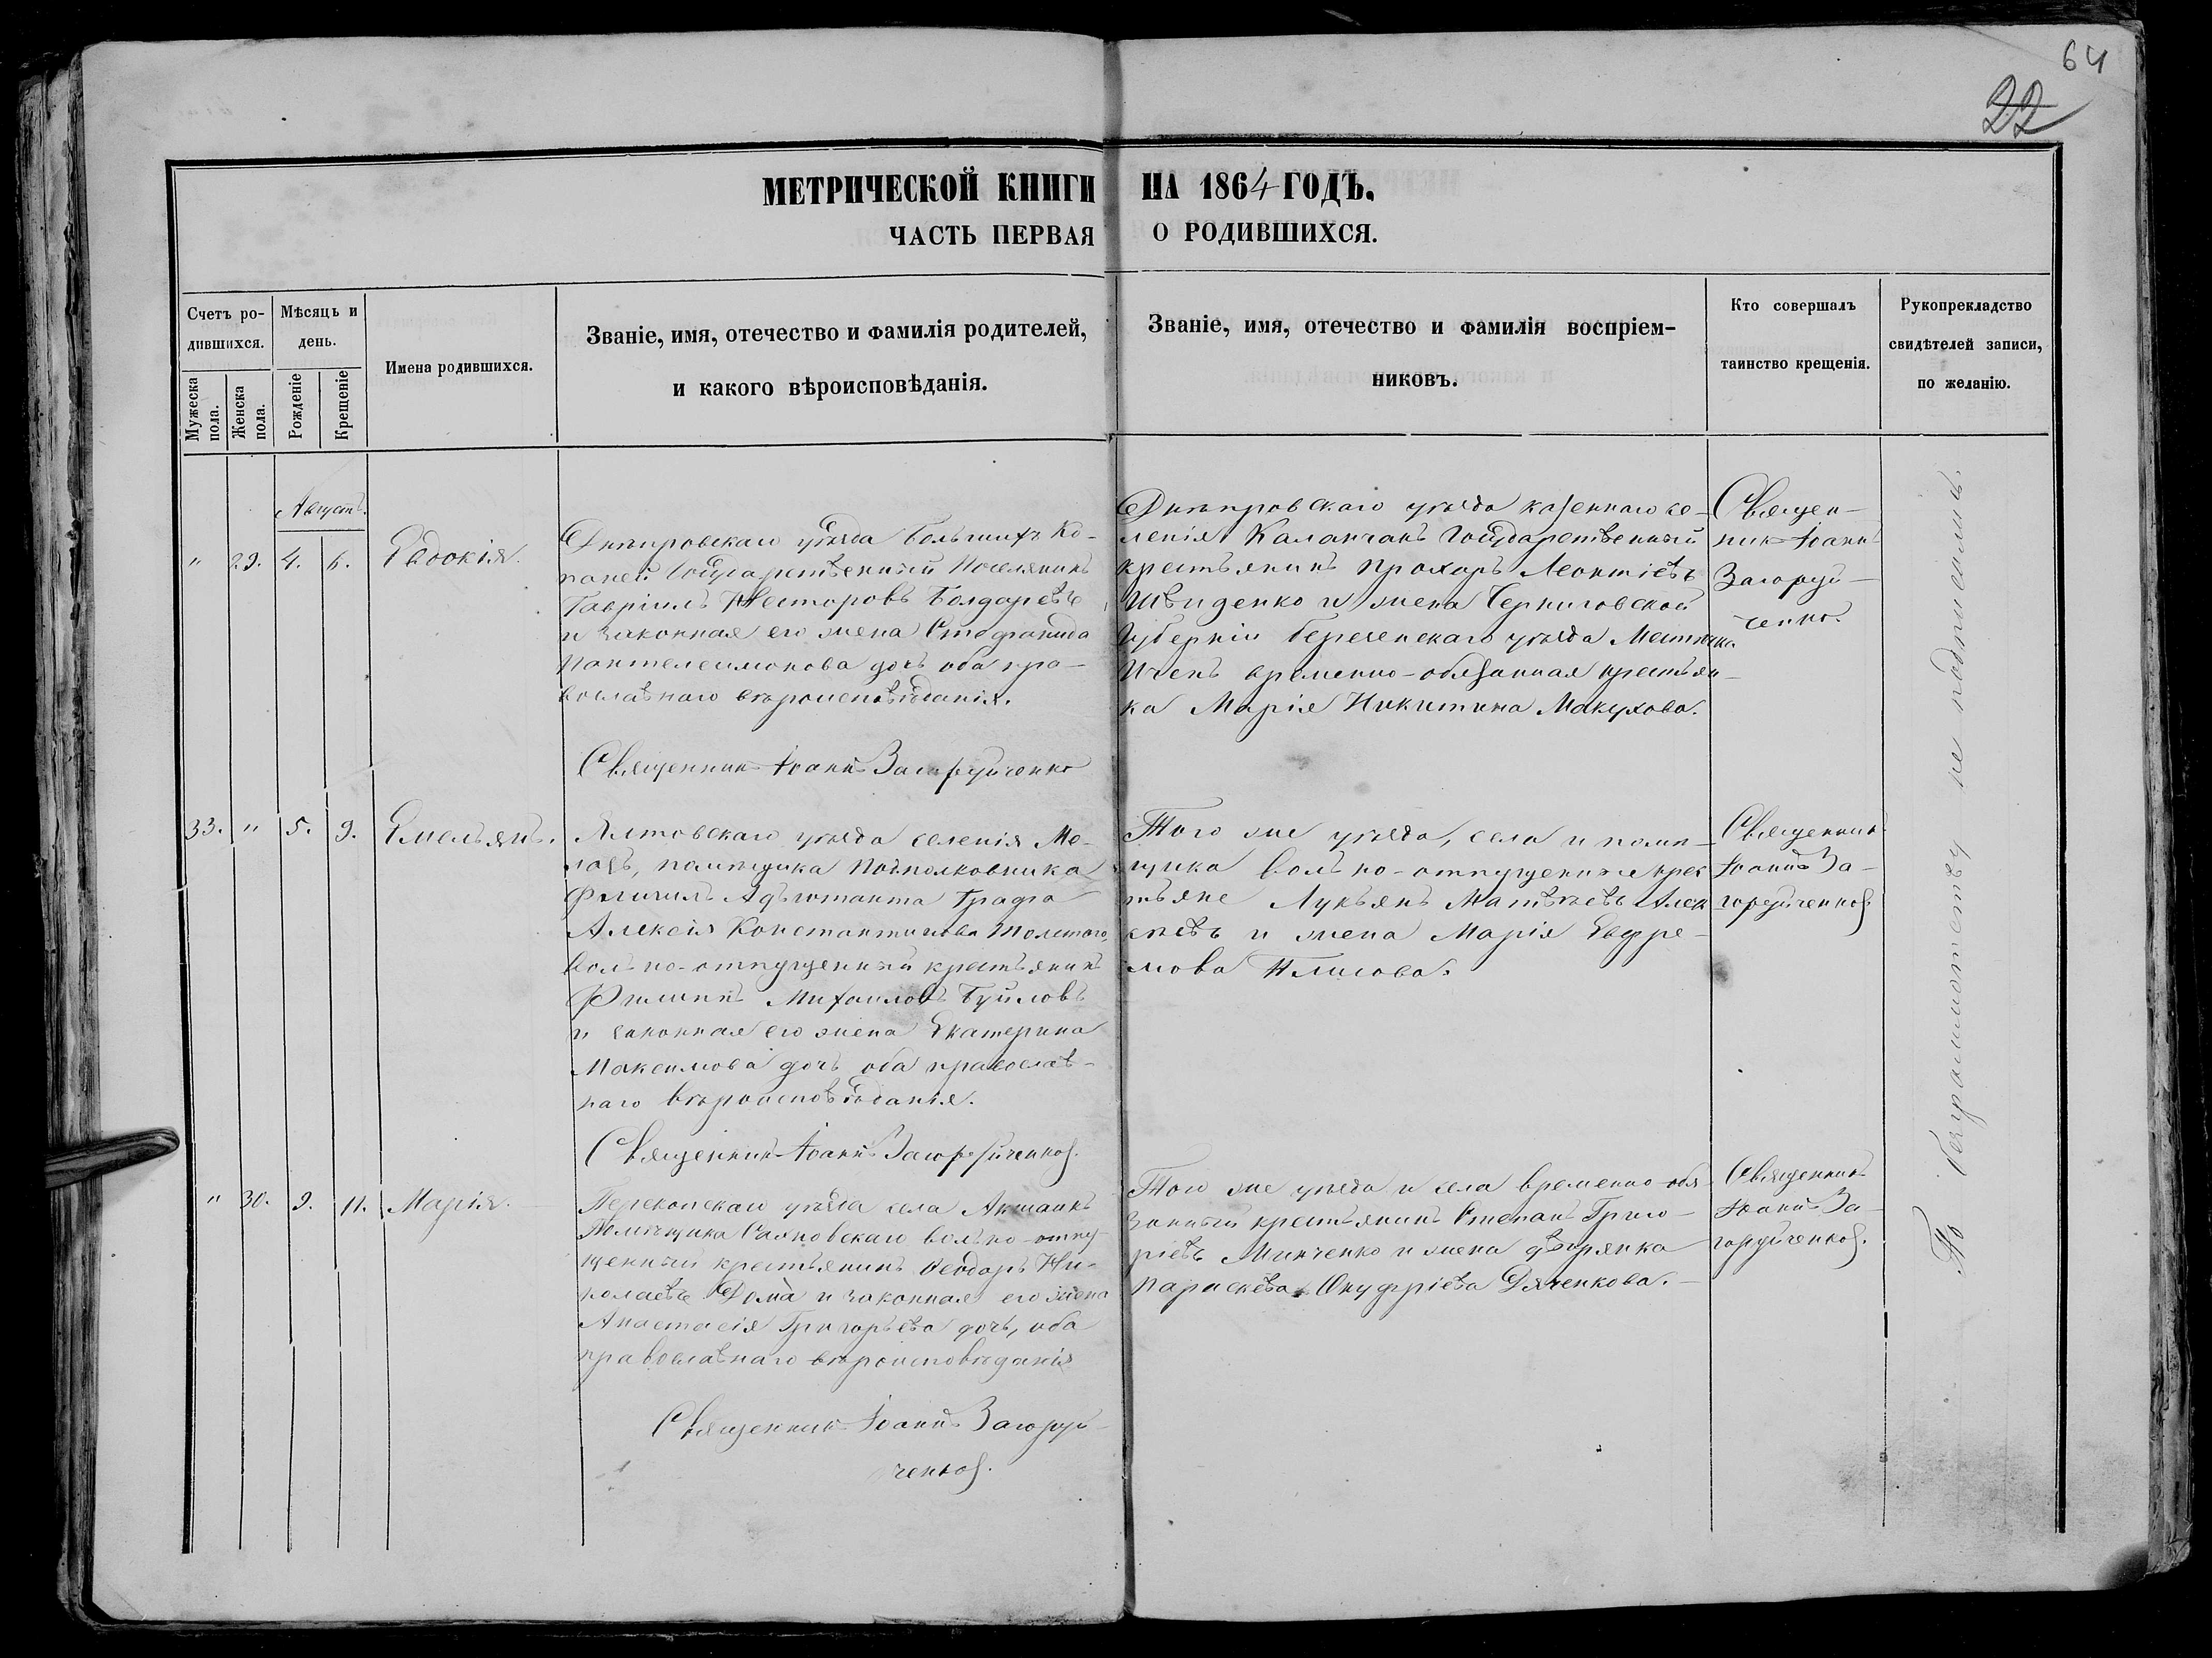 64
22
МЕТРИЧЕСКОЙ КНИГИ НА 1864 ГОДЪ.
ЧАСТЬ ПЕРВАЯ О РОДИВШИХСЯ.
Счетъ ро-
дившихся.
Мужеска пола.
Женска пола.
Мѣсяцъ и
день.
Рожденіе
Крещеніе
Имена родившихся.
Званіе, имя, отечество и фамилія родителей,
и какого вѣроисповѣданія.
Званіе, имя, отечество и фамилія воспріем-
никовъ.
Кто совершалъ
таинство крещенія.
Рукопрекладство
свидѣтелей записи,
по желанію.
Августъ.
" 29. 4. 6. Евдокія.
Днѣпровскаго уѣзда Большихъ Ко-
паней Государственный Поселянинъ
Гавріилъ Несторовъ Болдаревъ
и законная его жена Стефанида
Пантелеимонова дочь оба пра-
вославнаго вѣроисповѣданія.
Священникъ Іоаннъ Загоруйченко
Днѣпровскаго уѣзда казеннаго се-
ленія Каланчакъ Государственный
крестьянинъ Прохоръ Леонтіевъ
Швиденко и жена Черниговской
Губерніи уѣзда Местечка
Ичень временно-обязанная крестьян-
ка Марія Никитина Макухова.
Священ-
никъ Іоаннъ
Загоруй-
ченко.
33. " 5. 9. Емельянъ.
Ялтовскаго уѣзда селенія Ме-
ласъ, помѣщика Подполковника
Флигиль Адъютанта Графа
Алексія Константинова Толстого,
вольно-отпущенный крестьянинъ
Филиппъ Михаиловъ Буйловъ
и законная его жена Екатерина
Максимова дочь оба православ-
наго вѣроисповѣданія.
Священникъ Іоаннъ Загоруйченко.
Того же уѣзда, села и помѣ-
щика вольно-отпущенные крес
тьяне Лукьянъ Матвѣевъ Алек
сѣевъ и жена Марія Ефре-
мова
Священникъ
Іоаннъ За-
горуйченко.
" 30. 9. 11. Марія.
Перекопскаго уѣзда села
Помѣщика вольно-отпу-
щенный крестьянинъ Ѳеодоръ Ни-
колаевъ Дома и законная его жена
Анастасія Григорьева дочь, оба
православнаго вѣроисповѣданія
Священникъ Іоаннъ Загоруй-
ченко.
Того же уѣзда и села временно-обя
занный крестьянинъ Степанъ Григо-
ріевъ Минченко и жена дворянка
Параскева Онуфріева Дяченкова.
Священникъ
Іоаннъ За-
горуйченко.
По безграмотству не подписались